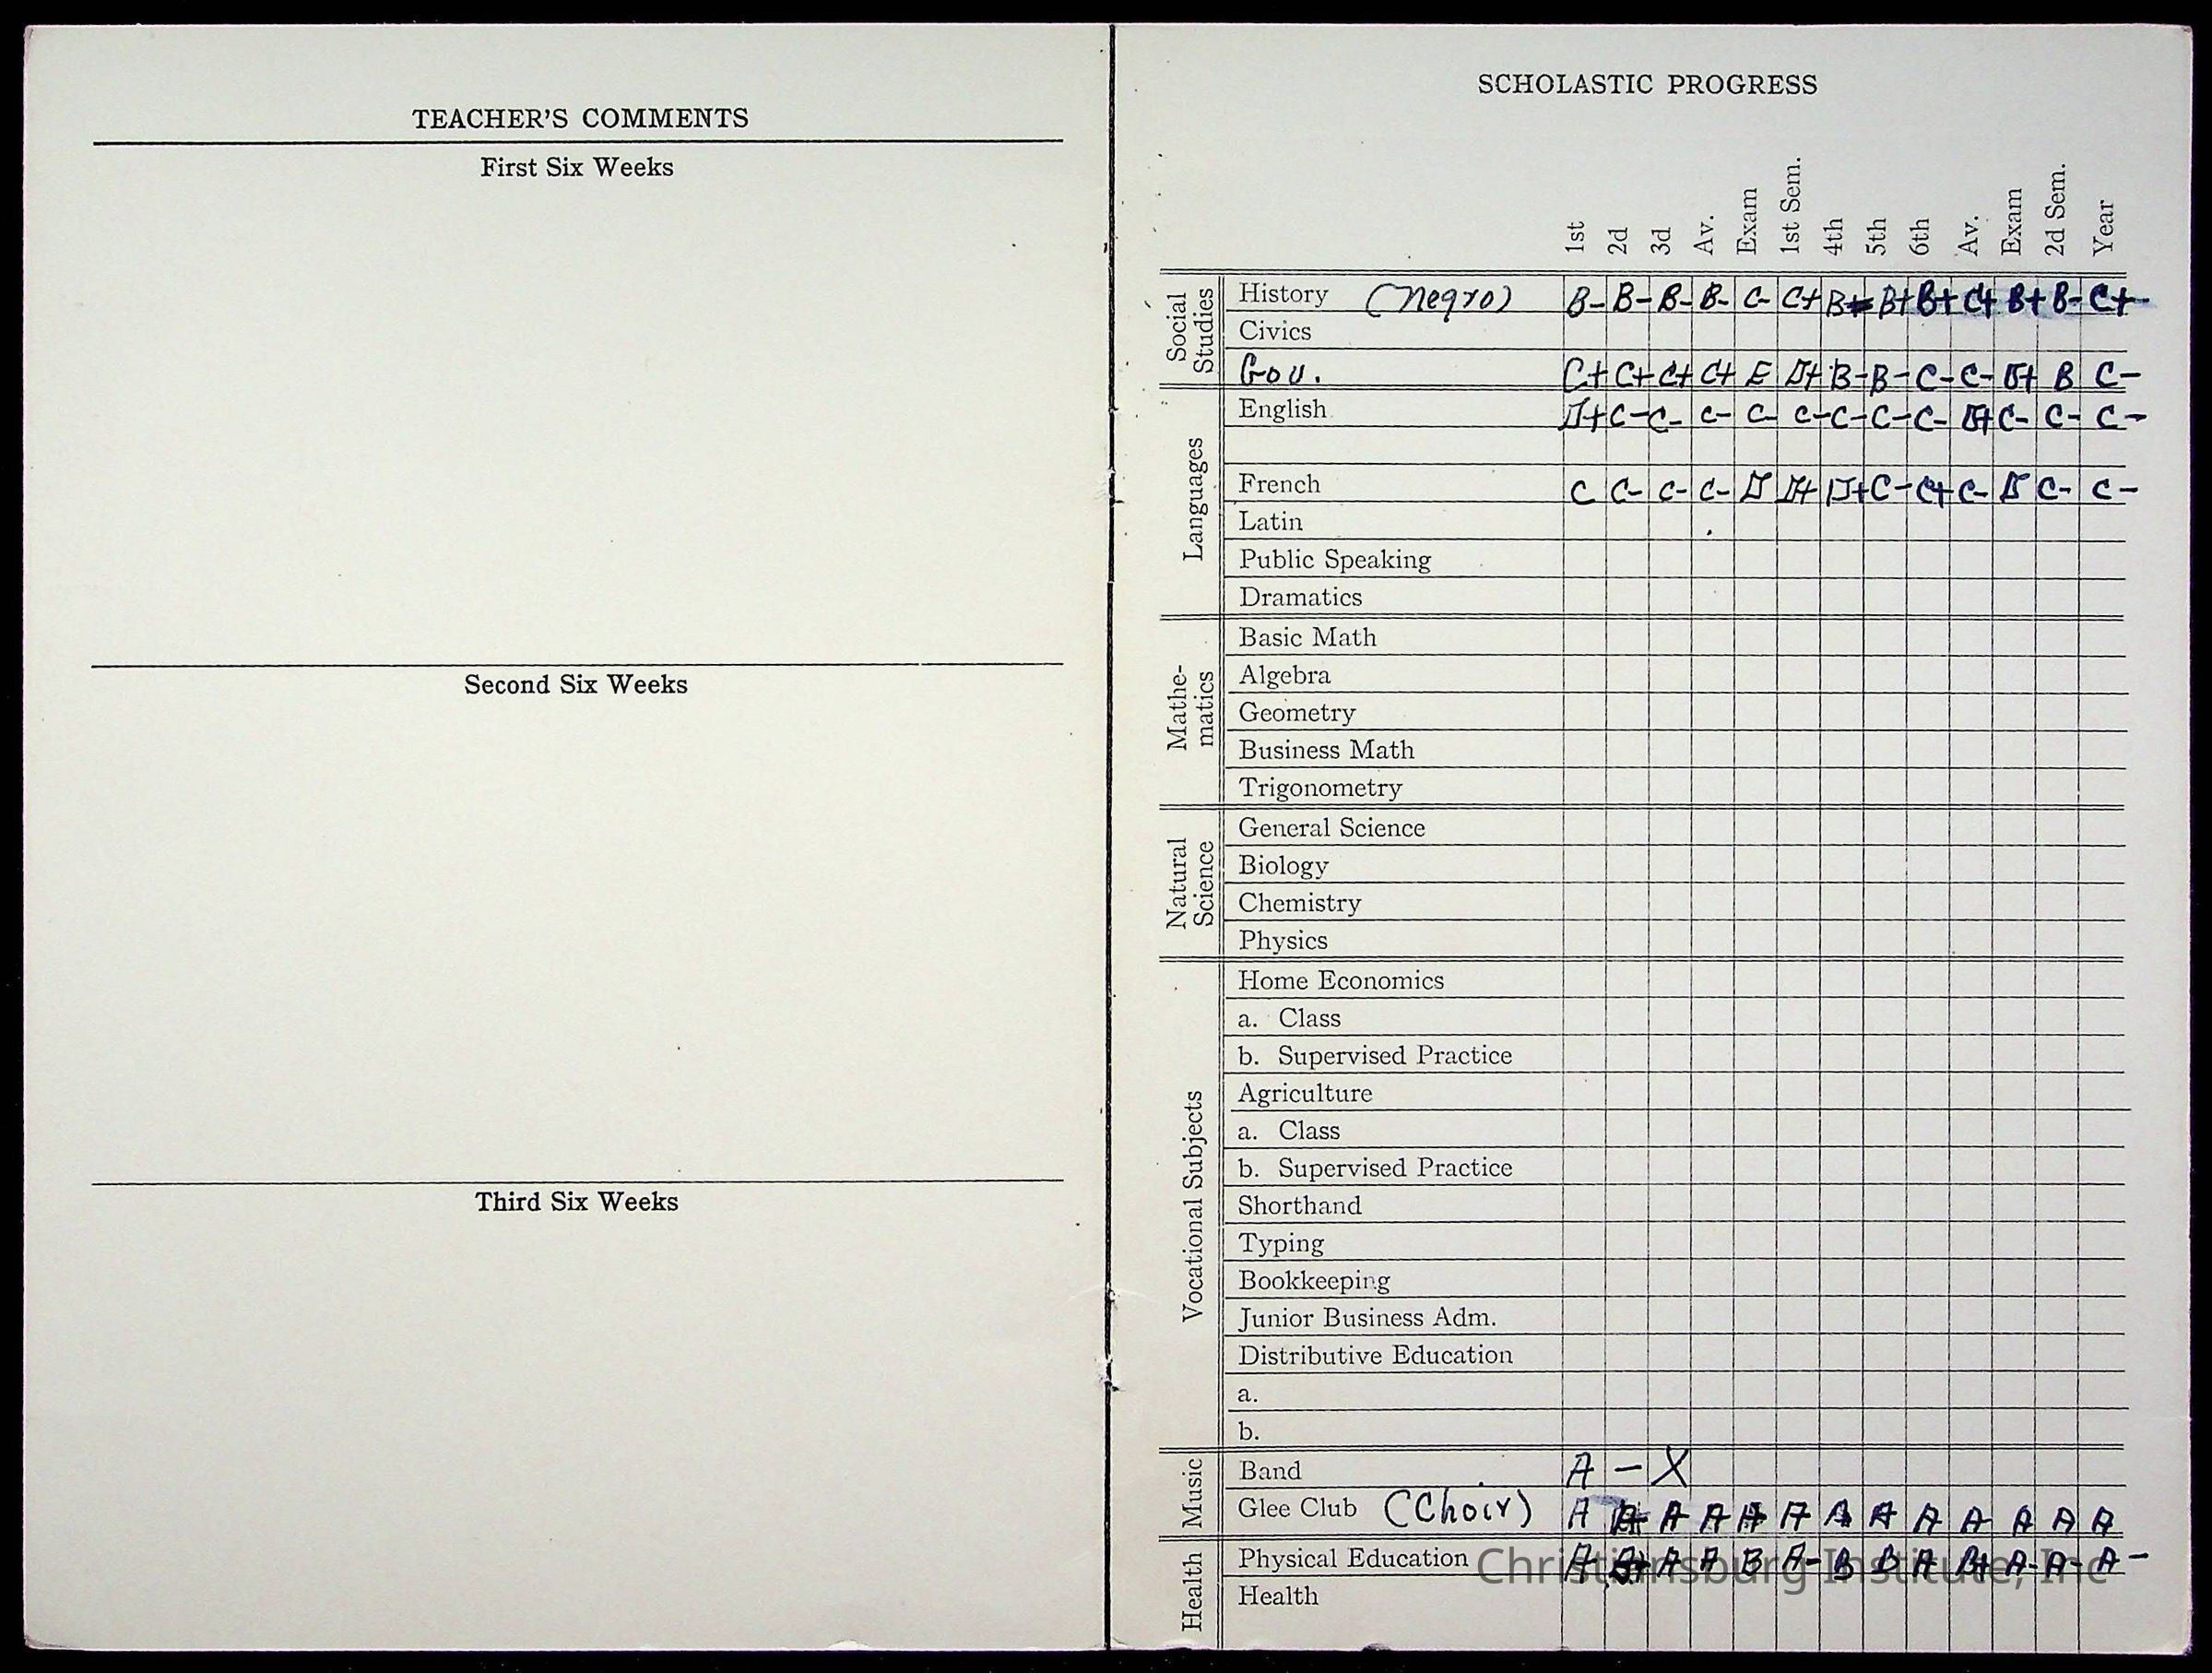 TEACHER'S COMMENTS
First Six Weeks
Second Six Weeks
Third Six Weeks
SCHOLASTIC PROGRESS
1st 2d 3d Av. Exam 1st Sem. 4th 5th 6th Av. Exam 2d Sem. Year
Social Studies
History (Negro) B- B- B- B- C- C+ B+ B+ B+ C+ B+ B- C+
Civics
Gov. C+ C+ C+ C+ E D+ B- B- C- C- D+ B C-
Languages
English D+ C- C- C- C C- C- C- C- D+ C- C- C-
French C C- C- C- D D+ D+ C- C+ C- D C- C-
Latin
Public Speaking
Dramatics
Mathe-
matics
Basic Math
Algebra
Geometry
Business Math
Trigonometry
Natural Science
General Science
Biology
Chemistry
Physics
Vocational Subjects
Home Economics
a. Class
b. Supervised Practice
Agriculture
a. Class
b. Supervised Practice
Shorthand
Typing
Bookkeeping
Junior Business Adm.
Distributive Education
a.
b.
Music
Band A - X
Glee Club (Choir) A A A A A A A A A A A A
Health
Physical Education A A A B A- B B A B+ A- A- A-
Health
Christiansburg Institute, Inc